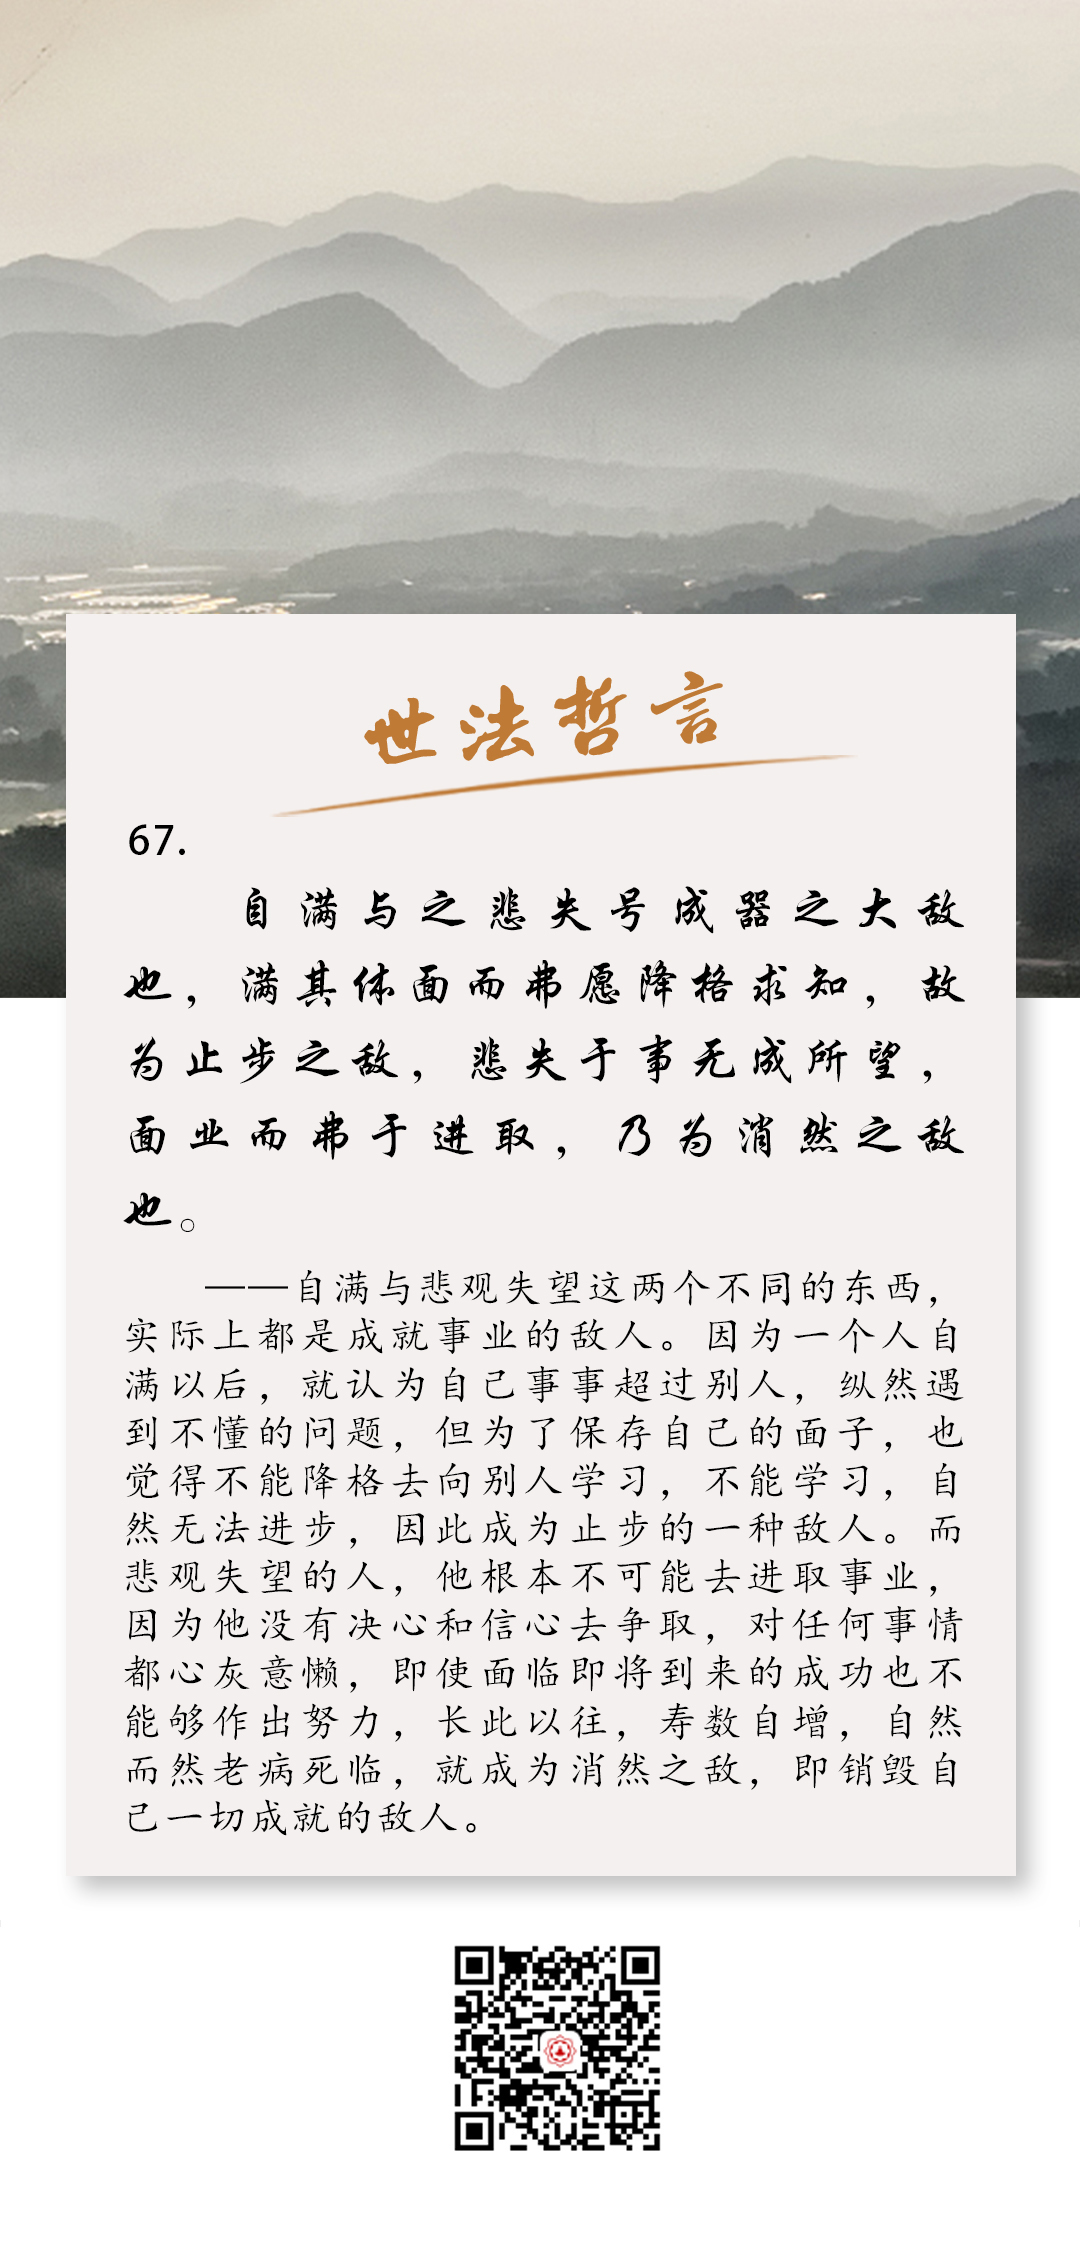 世法哲言
67.
自满与之悲失号成器之大敌
也，满其体面而弗愿降格求知，故
为止步之敌，悲失于事无成所望，
面业而弗于进取，乃为消然之敌
也。
——自满与悲观失望这两个不同的东西，
实际上都是成就事业的敌人。因为一个人自
满以后，就认为自己事事超过别人，纵然遇
到不懂的问题，但为了保存自己的面子，也
觉得不能降格去向别人学习，不能学习，自
然无法进步，因此成为止步的一种敌人。而
悲观失望的人，他根本不可能去进取事业，
因为他没有决心和信心去争取，对任何事情
都心灰意懒，即使面临即将到来的成功也不
能够作出努力，长此以往，寿数自增，自然
而然老病死临，就成为消然之敌，即销毁自
己一切成就的敌人。